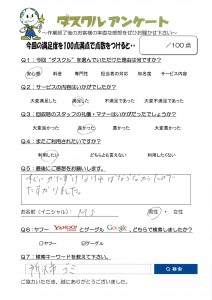 ダスクル アンケート
～作業終了後のお客様の率直な感想をぜひお聞かせ下さい～
今回の満足度を100点満点で点数をつけると・・ /100点
Q1：今回“ダスクル”を選んでいただけた理由は何ですか？
安心感 料金 専門性 担当者の対応 知名度 サービス内容
Q2：サービスの内容はいかがでしたか？
大変満足した 満足した 不満足であった 大変不満足であった
Q3：回収時のスタッフの礼儀・マナーはいかがだったでしょうか？
大変良かった 良かった 悪かった 大変悪かった
Q4：またご利用されたいですか？
利用したい どちらとも言えない 利用したくない
Q5：最後にご感想をお願いします。
すぐにかたずけなければならなかったので
たすかりました。
お名前（イニシャル） M.S 男性・女性
Q6：ヤフー YAHOO! とグーグル Google、どちらで検索しましたか？
ヤフー グーグル
Q7：検索キーワードを教えて下さい。
所沢市 ゴミ 検索
ご協力いただき、誠にありがとうございました。